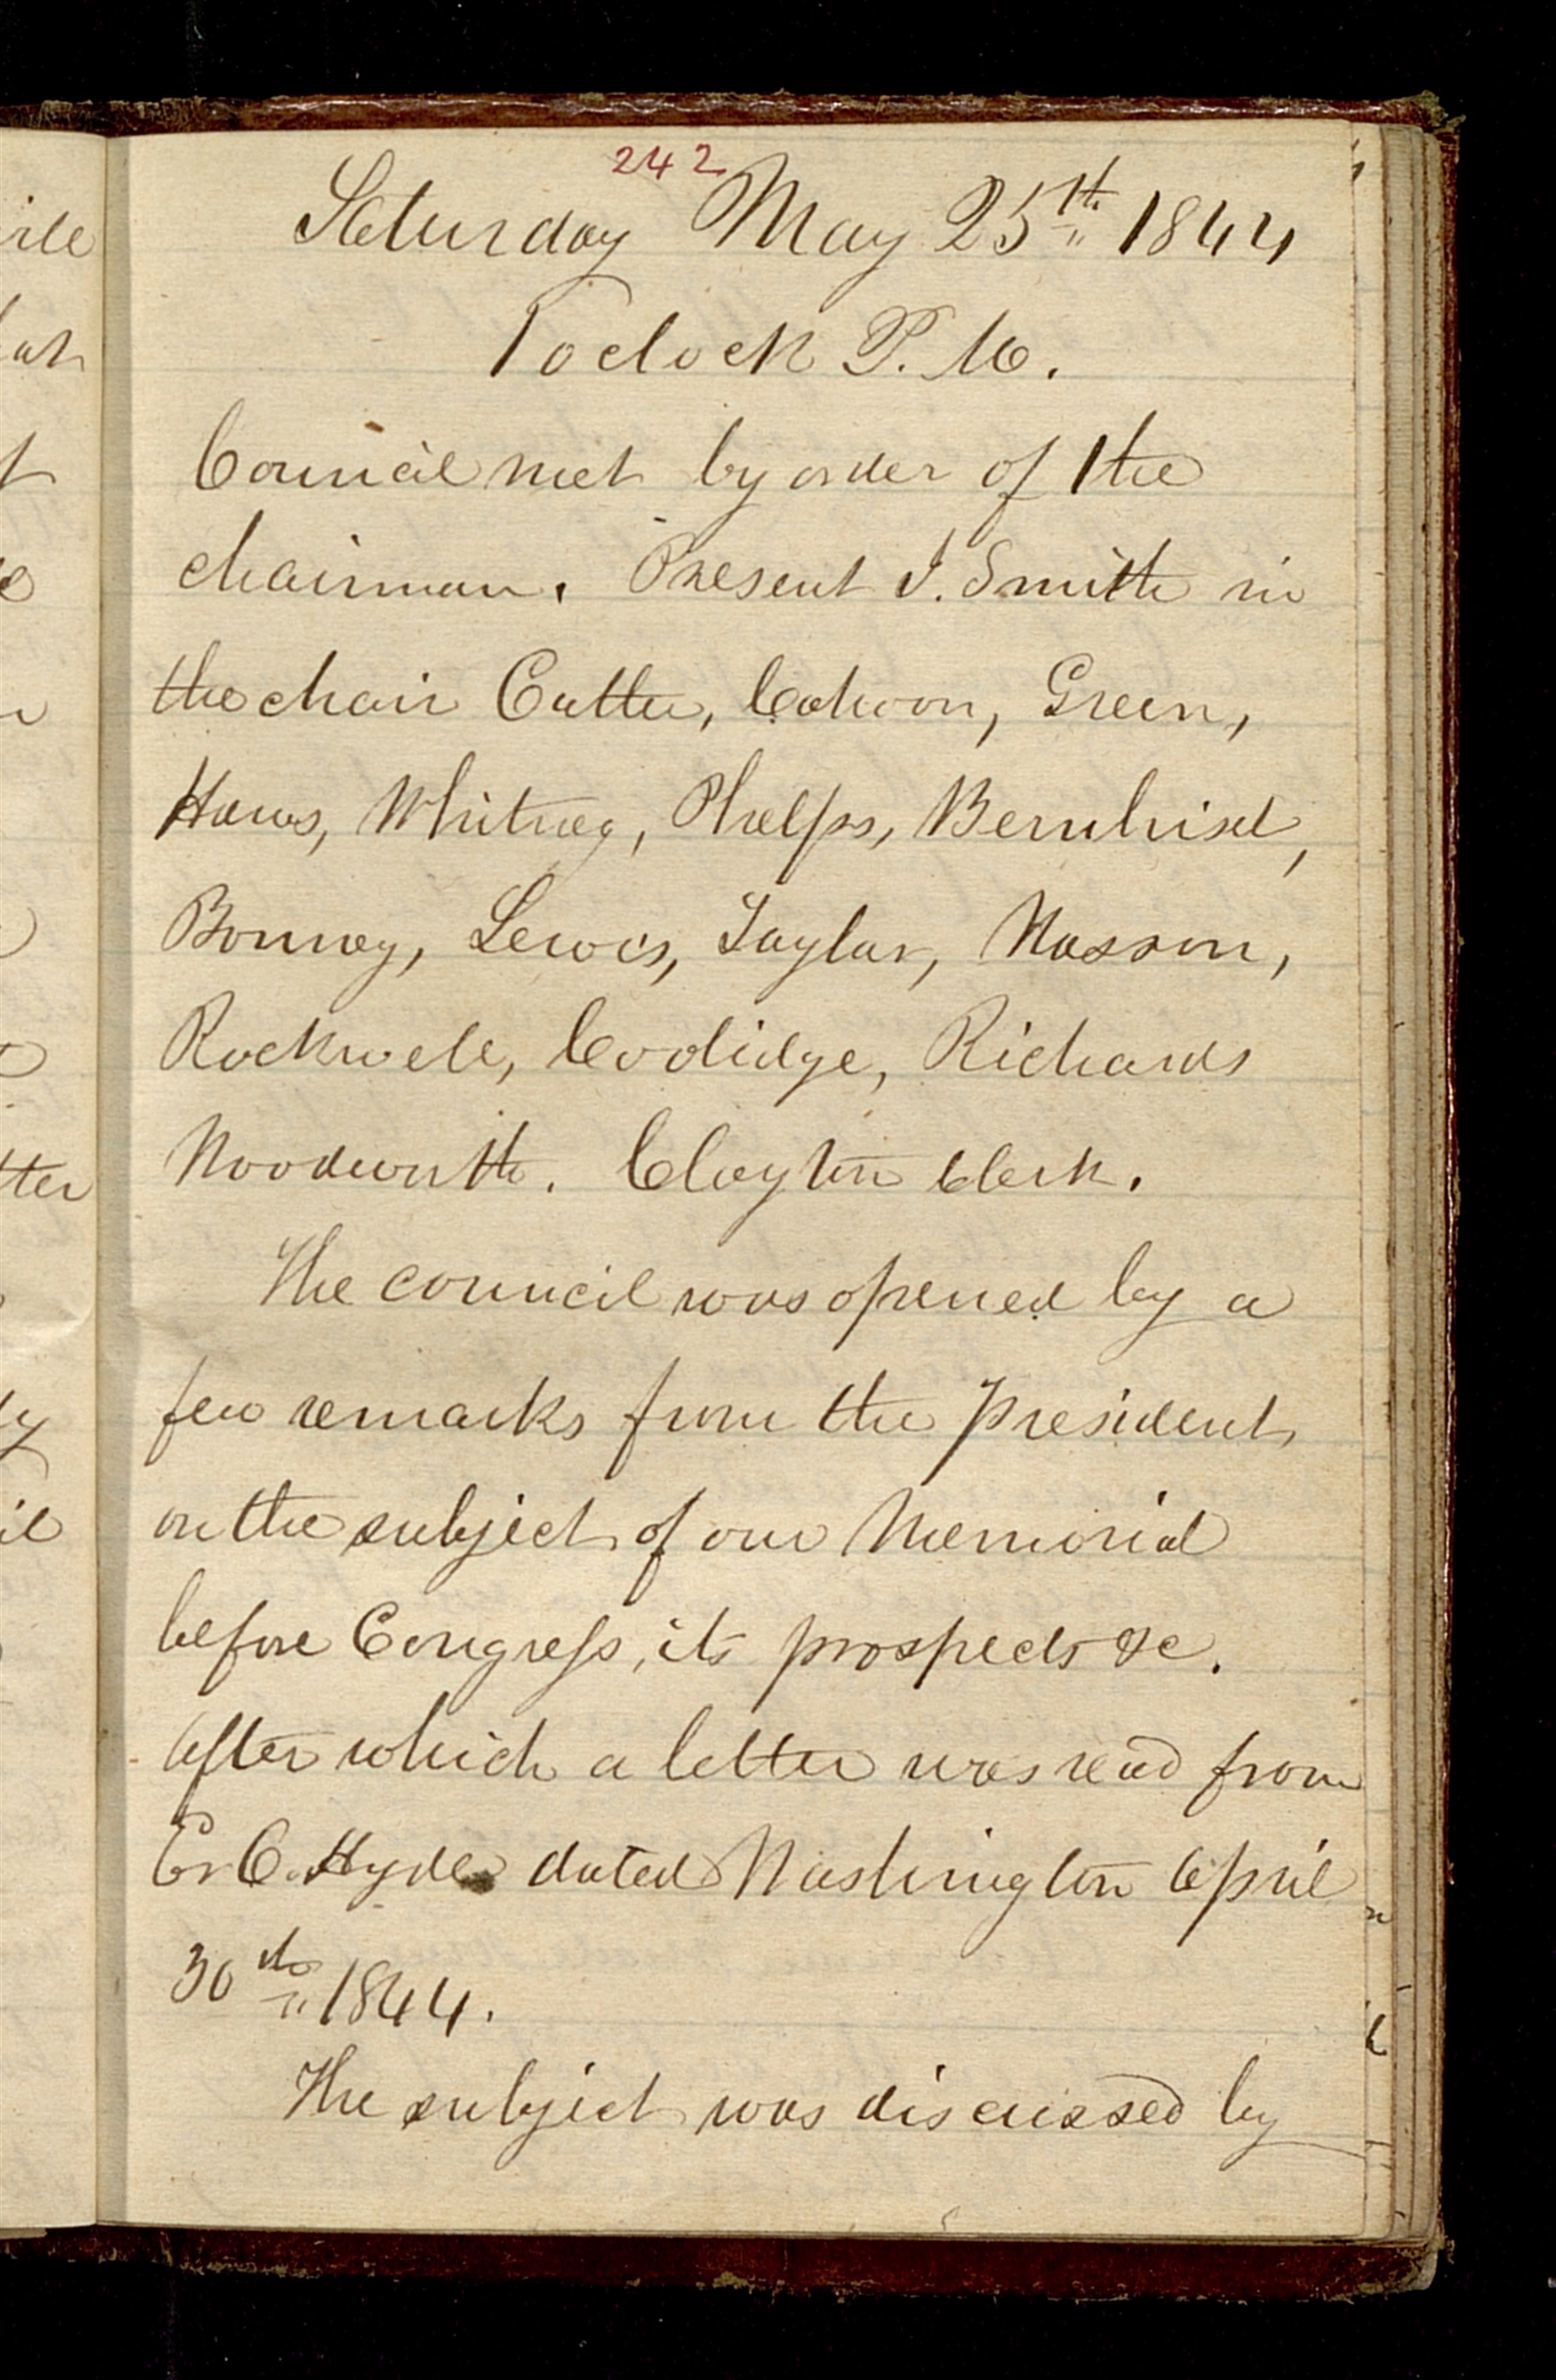 242
Saturday May 25th 1844
1 oclock P. M.
Council met by order of the
chairman. Present J. Smith in
the chair Cutler, Cahoon, Green,
Haws, Whitney, Phelps, Bernhisel,
Bonney, Lewis, Taylor, Wasson,
Rockwell, Coolidge, Richards
Woodworth. Clayton Clerk.
The council was opened by a
few remarks from the president
on the subject of our Memorial
before Congress, its prospects &c.
After which a letter was read from
Er O. Hyde dated Washington April
30th 1844.
The subject was discussed by